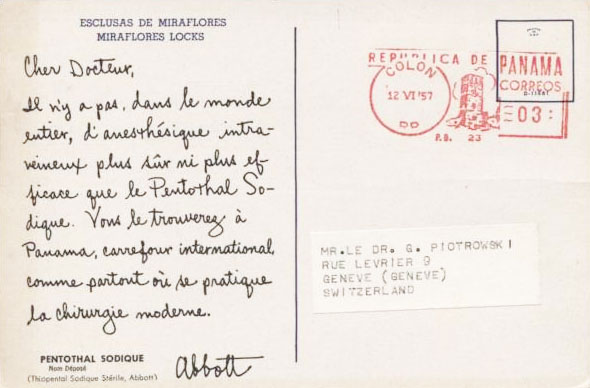 ESCLUSAS DE MIRAFLORES
MIRAFLORES LOCKS
Cher Docteur,
Il n'y a pas, dans le monde
entier, d'anesthésique intra-
veineux plus sûr ni plus ef-
ficace que le Pentothal So-
dique. Vous le trouverez à
Panama, carrefour international,
comme partout où se pratique
la chirurgie moderne.
PENTOTHAL SODIQUE
Nom Déposé
(Thiopental Sodique Stérile, Abbott)
Abbott
REPUBLICA DE PANAMA
CORREOS
COLON
12 VI '57
03
P.B. 23
MR.LE DR. G. PIOTROWSKI
RUE LEVRIER 9
GENEVE (GENEVE)
SWITZERLAND